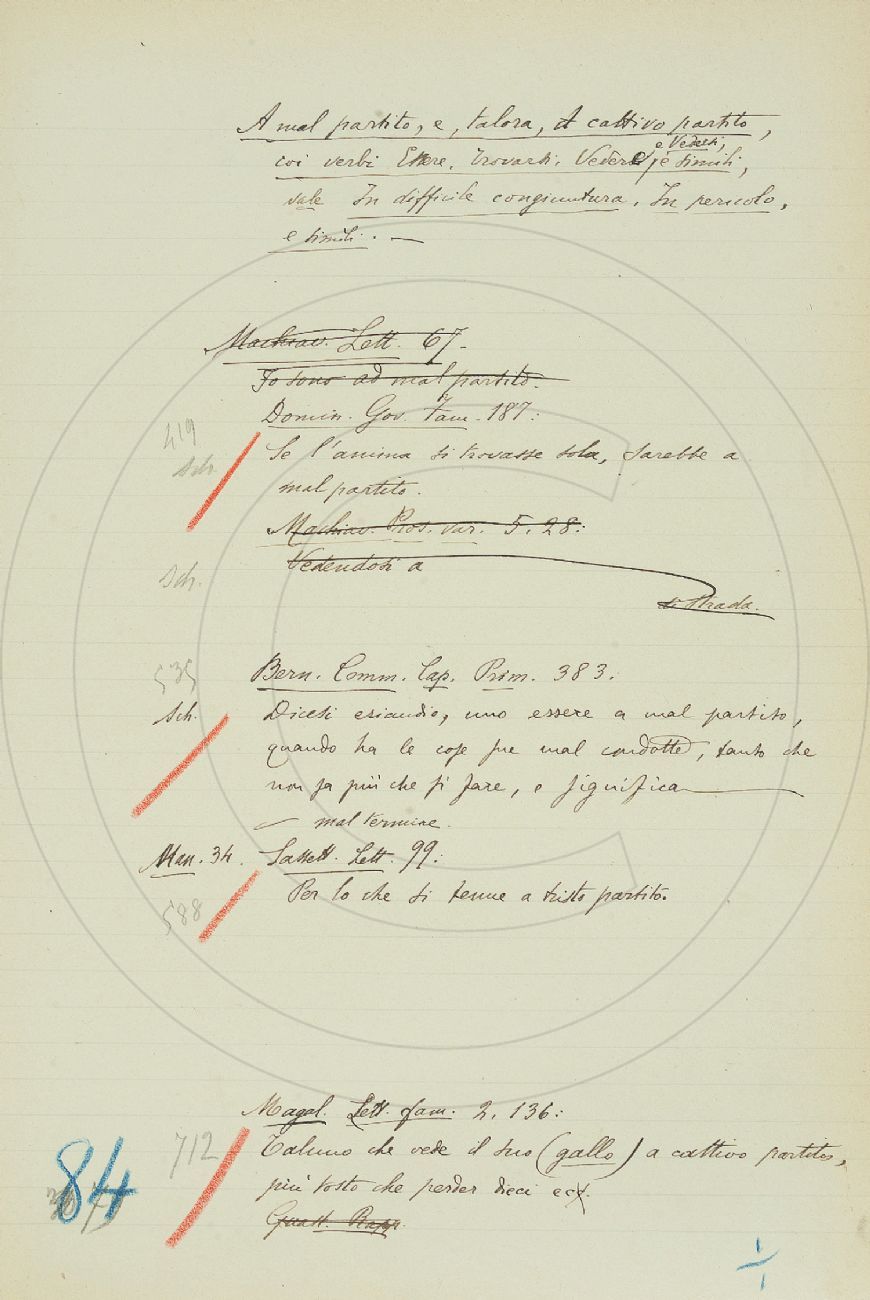 A mal partito, e, talora, A cattivo partito,
e Vedersi,
coi verbi Essere, Trovarsi, Vedere, e simili,
vale In difficile congiuntura, In pericolo,
e simili. —
Machiav. Lett. 67.
Io sono ad mal partito.
Domin. Gov. Fam. 187:
419
Se l'anima si trovasse sola, sarebbe a
Sch.
mal partito.
Machiav. Pros. var. 5. 28:
Vedendosi a
Sch.
strada.
535
Bern. Comm. Cap. Prim. 383.
Sch.
Dicesi eziandio, uno essere a mal partito,
quando ha le cose sue mal condotte, tanto che
non sa più che si fare, e significa
— mal termine.
Man. 34. Sassett. Lett. 99:
Per lo che si tenne a tristo partito.
588
Magal. Lett. fam. 2. 136:
712
Taluno che vede il suo (gallo) a cattivo partito,
più tosto che perder dieci ec.
84